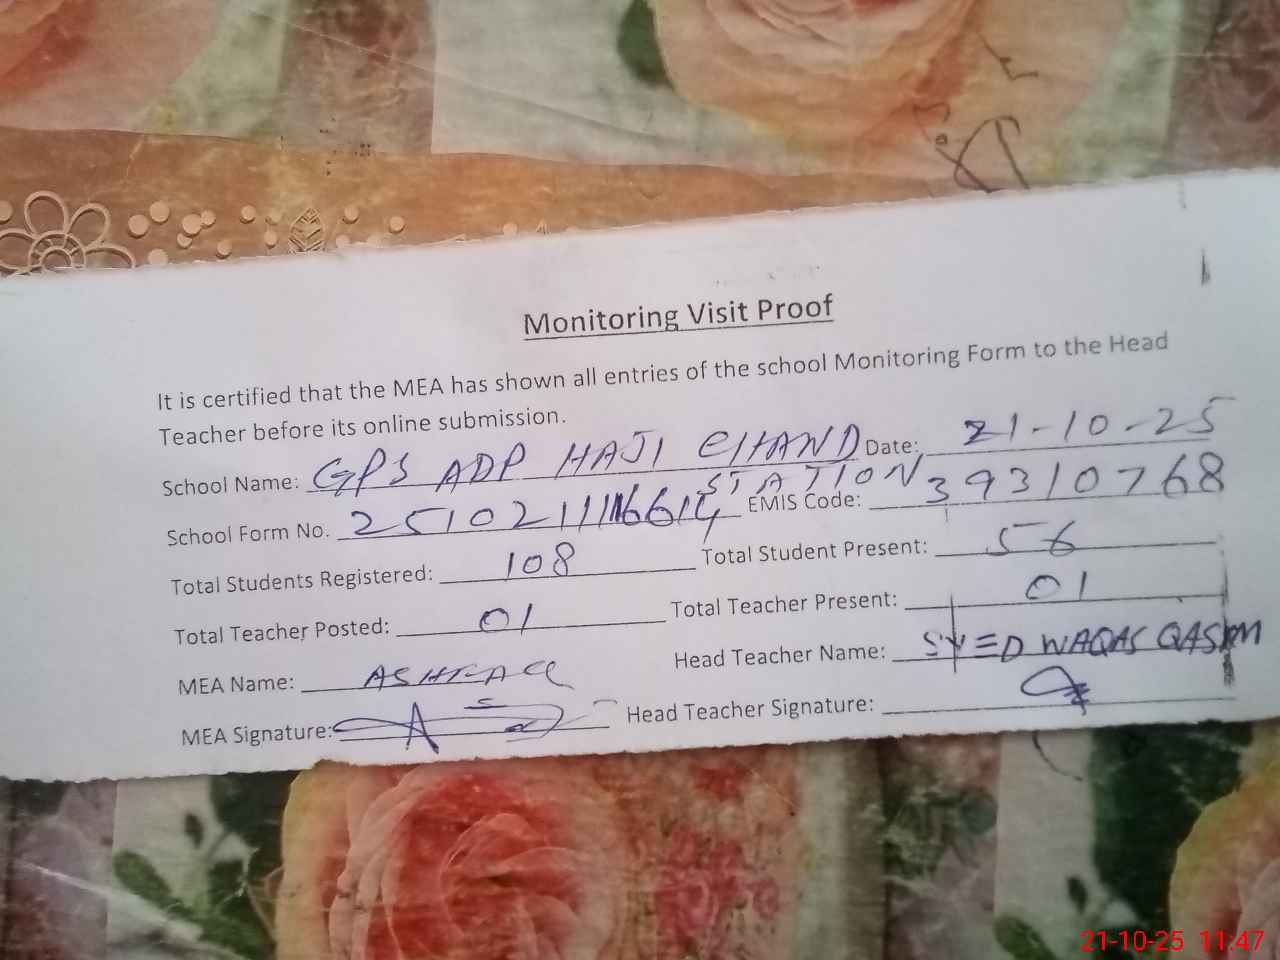 Monitoring Visit Proof
It is certified that the MEA has shown all entries of the school Monitoring Form to the Head
Teacher before its online submission.
School Name: GPS ADP HAJI CHAND STATION Date: 21-10-25
School Form No. EMIS Code: 39310768
Total Students Registered: 108 Total Student Present: 56
Total Teacher Posted: 01 Total Teacher Present: 01
MEA Name: ASHFAQ Head Teacher Name: SYED WAQAS QASIM
MEA Signature: Head Teacher Signature:
21-10-25 11:47